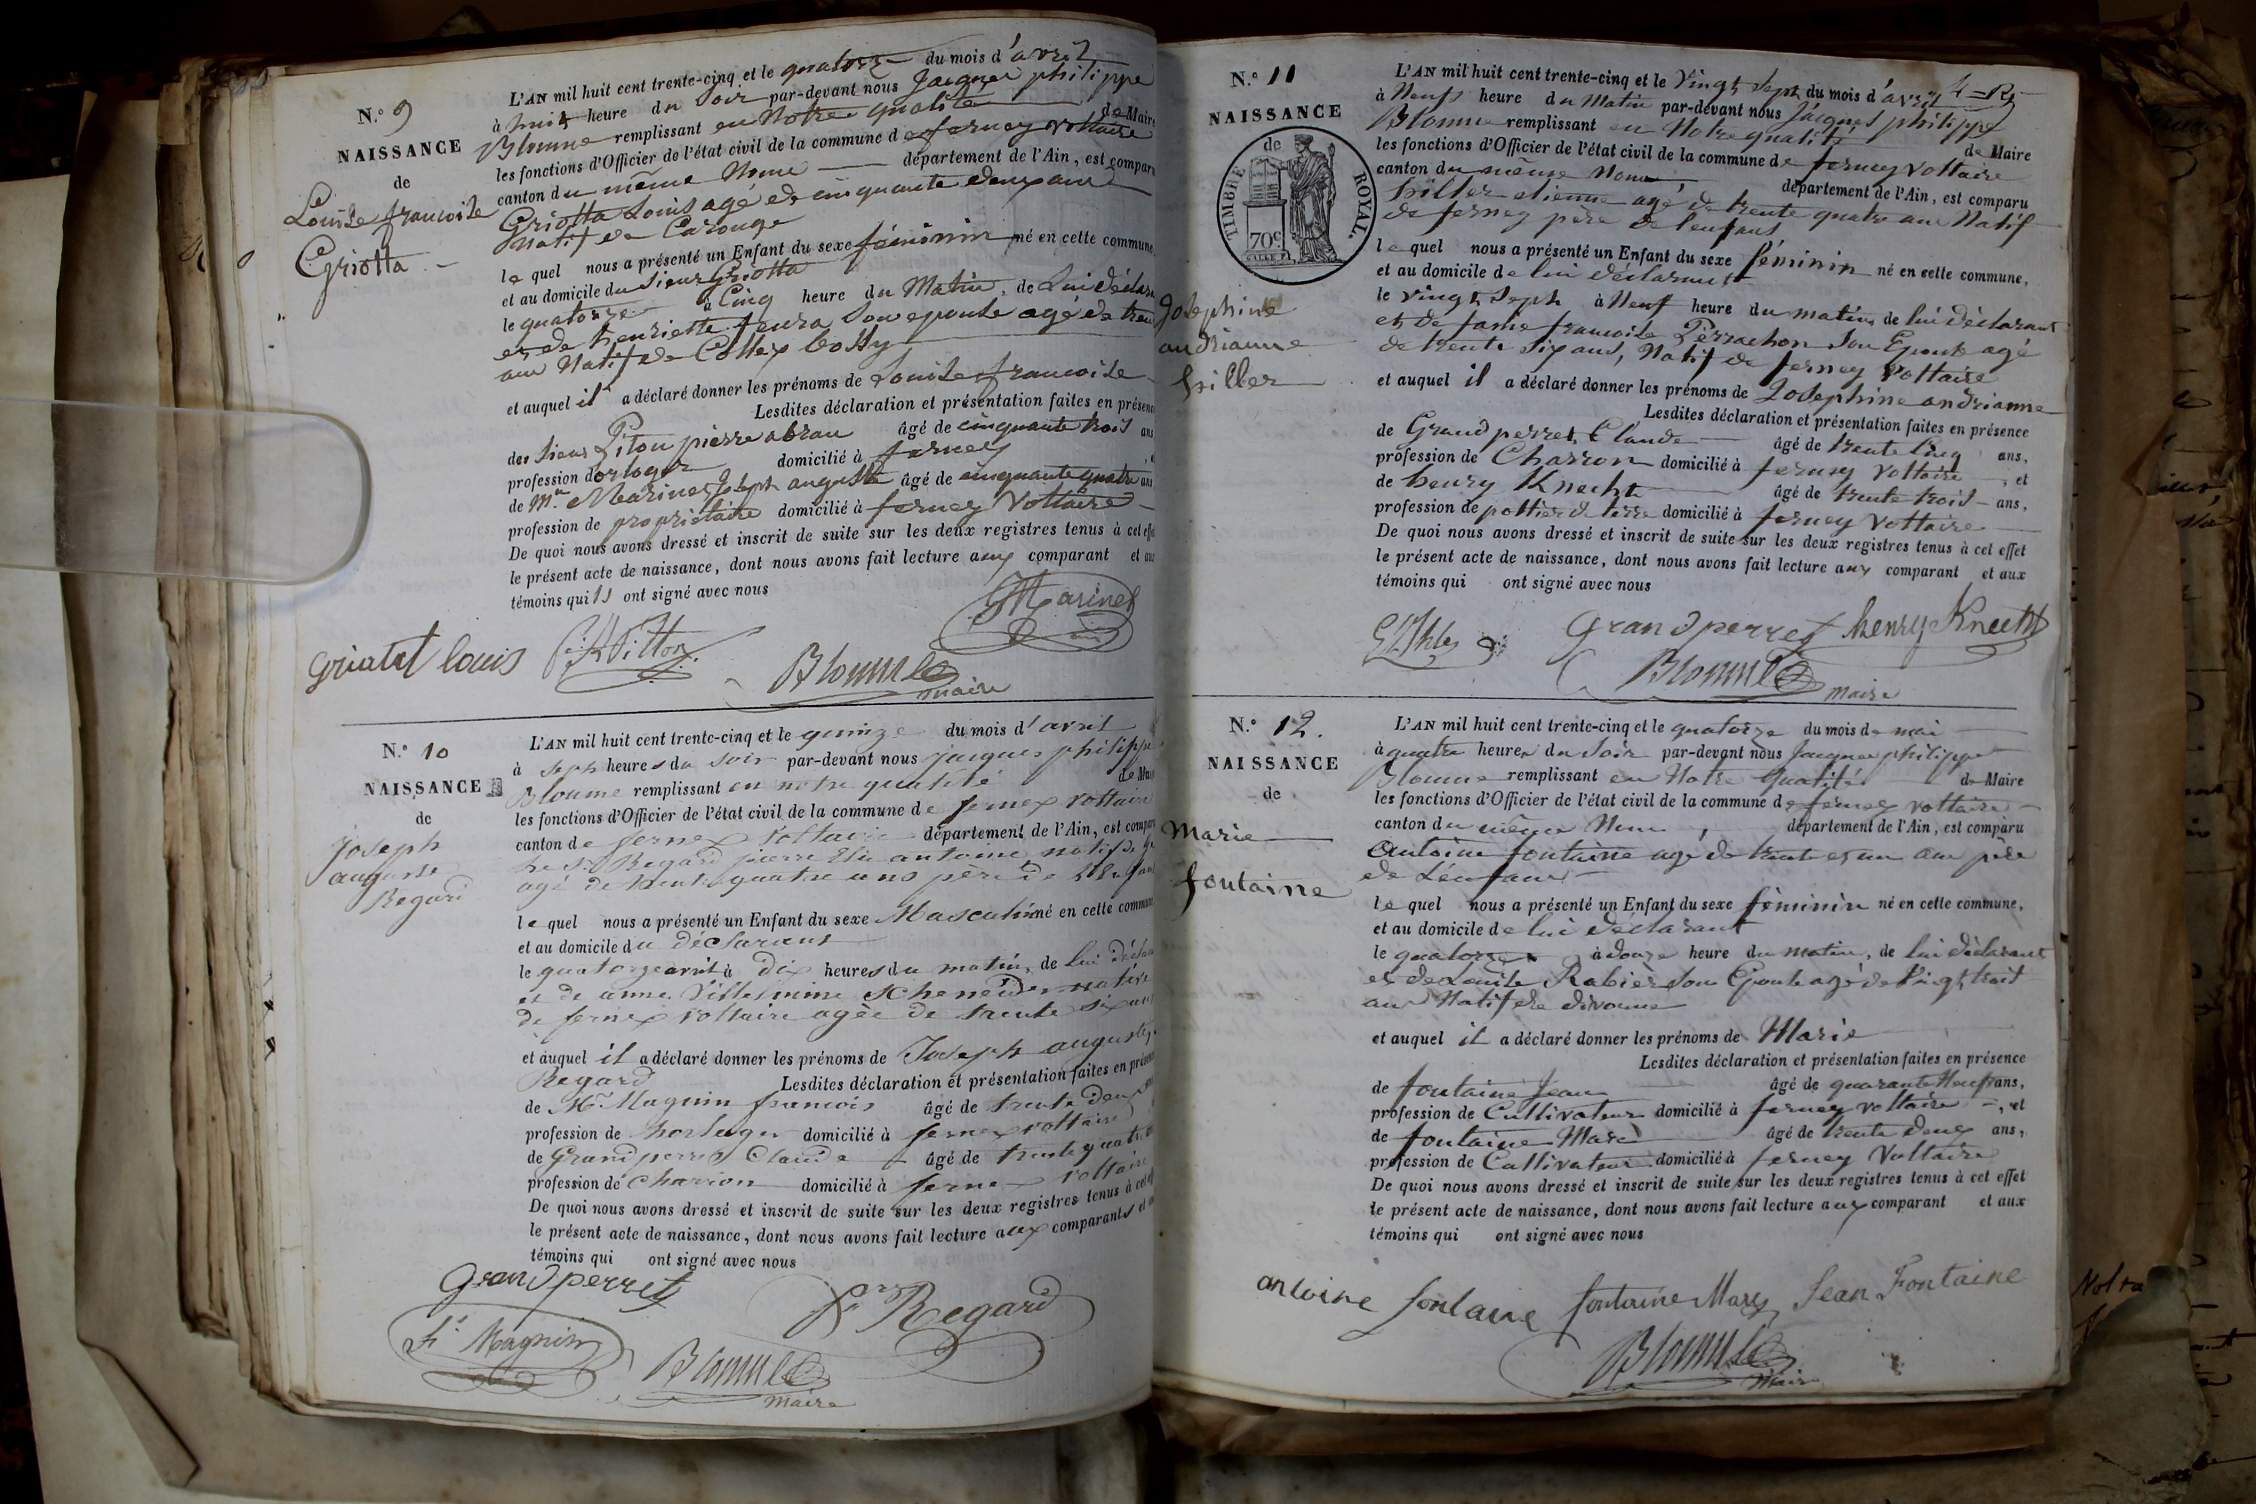 N.º 9
NAISSANCE
de
Louise francoise
Griotta
L'AN mil huit cent trente-cinq et le quatorze du mois d'avril
à huit heure du Soir par-devant nous Jacques philippe
Blomme remplissant en Notre qualité de Maire
les fonctions d'Officier de l'état civil de la commune de ferney voltaire
canton du même Nome département de l'Ain, est comparu
Griotta Louis agé de cinquante deux ans
Natif de Carouge
le quel nous a présenté un Enfant du sexe féminin né en cette commune
et au domicile du Sieur Griotta
le quatorze à Cinq heure du Matin, de Lui déclara
et de henriette son epouse agé de
ans Natif de Collex bossy
et auquel il a déclaré donner les prénoms de Louise francoise
Lesdites déclaration et présentation faites en présence
des Sieurs Piton pierre abram âgé de cinquante trois ans
profession d'orloger domicilié à ferney
de Mr. Marinet Joseph auguste âgé de cinquante quatre ans
profession de propriétaire domicilié à ferney Voltaire
De quoi nous avons dressé et inscrit de suite sur les deux registres tenus à cet effe
le présent acte de naissance, dont nous avons fait lecture aux comparant et aux
témoins qui ont signé avec nous
Marinet
griatat louis Pitton
Blomme
maire
N.º 10
NAISSANCE
de
Joseph
auguste
Regard
L'AN mil huit cent trente-cinq et le quinze du mois d'avril
à sept heures du soir par-devant nous jacques philippe
Bloume remplissant en notre qualité de Mai
les fonctions d'Officier de l'état civil de la commune de fernex voltaire
canton de fernex voltaire département de l'Ain, est compar
le Sr. Regard pierre Elie antoine natif de
agé de trente quatre ans père de l'Enfant
le quel nous a présenté un Enfant du sexe Masculin né en cette commune
et au domicile du déclarant
le quatorze avril à dix heures du matin, de lui décla
et de anne Villelmine Scheneider native
de fernex voltaire agée de trente six ans
et auquel il a déclaré donner les prénoms de Joseph auguste
Regard Lesdites déclaration et présentation faites en présen
de Mr. Magnin francois âgé de trente deux
profession de horloger domicilié à fernex voltaire
de Grandperret Claude âgé de trente quatre
profession de Charron domicilié à fernex voltaire
De quoi nous avons dressé et inscrit de suite sur les deux registres tenus à cet ef
le présent acte de naissance, dont nous avons fait lecture aux comparants et
témoins qui ont signé avec nous
Grandperret
Regard
fs Magnin
Blomme
maire
N.º 11
NAISSANCE
de
TIMBRE ROYAL.
70c
Josephine
andrianne
hiller
L'AN mil huit cent trente-cinq et le Vingt Sept du mois d'avril
à Neuf heure du Matin par-devant nous Jacques philippe
Blomme remplissant en Notre qualité de Maire
les fonctions d'Officier de l'état civil de la commune de ferney voltaire
canton du même Nome, département de l'Ain, est comparu
hiller etienne agé de trente quatre ans Natif
de ferney père de l'enfant
le quel nous a présenté un Enfant du sexe féminin né en cette commune,
et au domicile de lui déclarant
le vingt Sept à Neuf heure du matin, de lui déclarant
et de francoise Perrachon Son Epouse agé
de trente six ans, Natif de ferney Voltaire
et auquel il a déclaré donner les prénoms de Josephine andrianne
Lesdites déclaration et présentation faites en présence
de Grand perret Claude âgé de trente Cinq ans,
profession de Charron domicilié à ferney Voltaire, et
de henry Knecht âgé de trente trois ans,
profession de pottier de terre domicilié à ferney Voltaire
De quoi nous avons dressé et inscrit de suite sur les deux registres tenus à cet effet
le présent acte de naissance, dont nous avons fait lecture aux comparant et aux
témoins qui ont signé avec nous
Grandperret henry Knecht
Blomme
maire
N.º 12.
NAISSANCE
de
Marie
fontaine
L'AN mil huit cent trente-cinq et le quatorze du mois de mai
à quatre heures du Soir par-devant nous Jacques philippe
Blomme remplissant en Notre qualité de Maire
les fonctions d'Officier de l'état civil de la commune de ferney voltaire
canton du même Nome, département de l'Ain, est comparu
Antoine fontaine agé de trente et un ans père
de L'enfant
le quel nous a présenté un Enfant du sexe féminin né en cette commune,
et au domicile de lui déclarant
le quatorze à douze heure du matin, de lui déclarant
et de Louise Rabier Son Epouse agé de vingt trois
ans Natif de divonne
et auquel il a déclaré donner les prénoms de Marie
Lesdites déclaration et présentation faites en présence
de fontaine Jean âgé de quarante Neuf ans,
profession de Cultivateur domicilié à ferney voltaire, et
de fontaine Marc âgé de trente deux ans,
profession de Cultivateur domicilié à ferney Voltaire
De quoi nous avons dressé et inscrit de suite sur les deux registres tenus à cet effet
le présent acte de naissance, dont nous avons fait lecture aux comparant et aux
témoins qui ont signé avec nous
antoine fontaine fontaine Marc Jean Fontaine
Blomme
maire